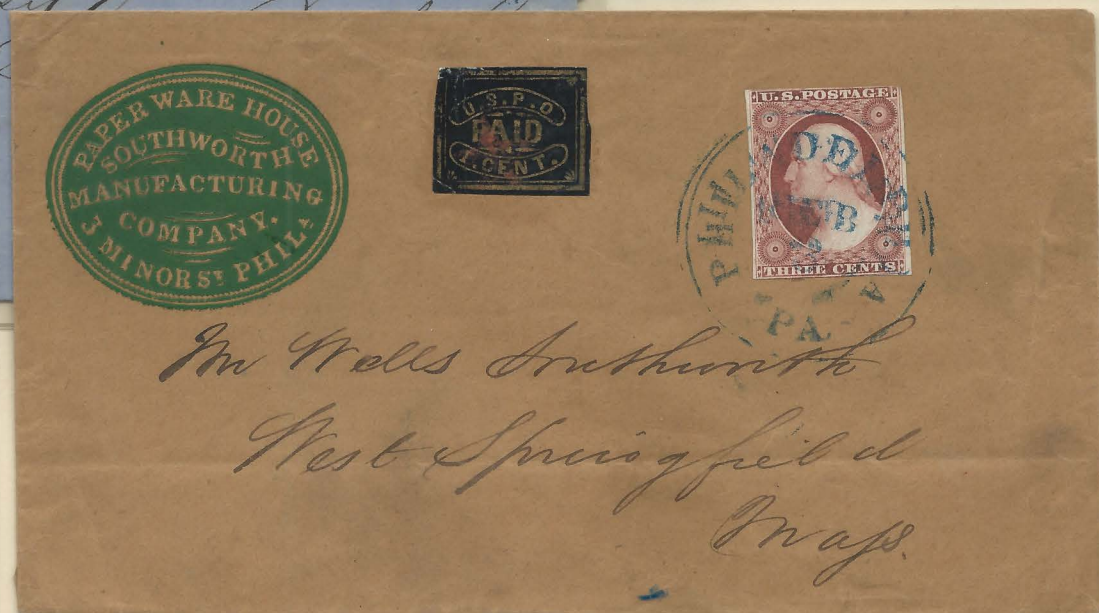 PAPER WARE HOUSE
SOUTHWORTH
MANUFACTURING
COMPANY.
3 MINOR ST PHILA
U.S.P.O
PAID
1 CENT.
U.S. POSTAGE
THREE CENTS
PHILADELPHIA
FEB
PA.
Mr Wells Southworth
West Springfield
Mass.